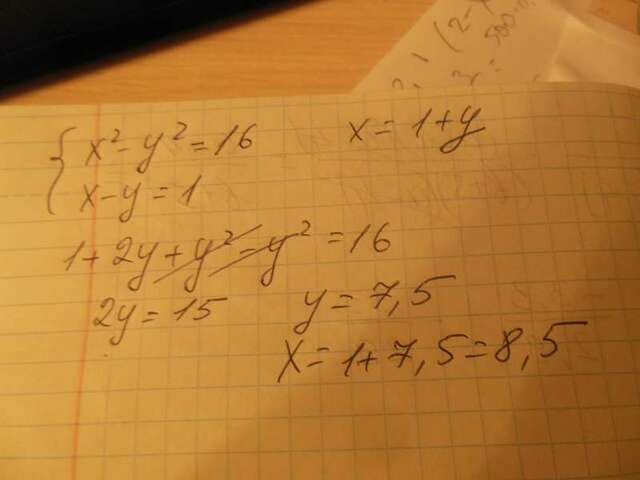 { x² - y² = 16
x = 1 + y
x - y = 1
1 + 2y + y² - y² = 16
2y = 15
y = 7,5
x = 1 + 7,5 = 8,5